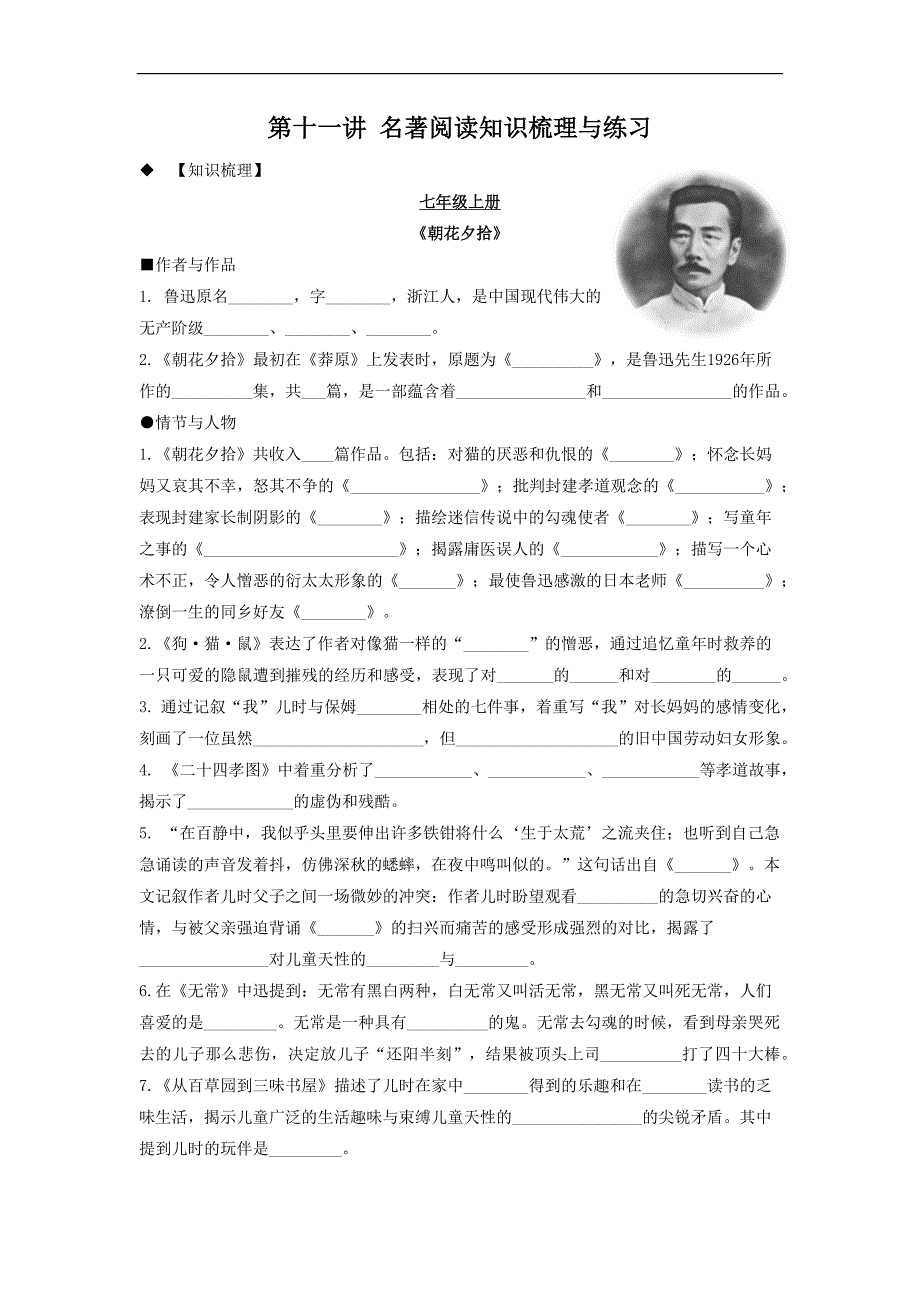 第十一讲 名著阅读知识梳理与练习
◆ 【知识梳理】
七年级上册
《朝花夕拾》
■作者与作品
1. 鲁迅原名________，字________，浙江人，是中国现代伟大的
无产阶级________、________、________。
2.《朝花夕拾》最初在《莽原》上发表时，原题为《__________》，是鲁迅先生1926年所
作的__________集，共___篇，是一部蕴含着________________和________________的作品。
●情节与人物
1.《朝花夕拾》共收入____篇作品。包括：对猫的厌恶和仇恨的《________》；怀念长妈
妈又哀其不幸，怒其不争的《________________》；批判封建孝道观念的《___________》；
表现封建家长制阴影的《________》；描绘迷信传说中的勾魂使者《________》；写童年
之事的《________________________》；揭露庸医误人的《____________》；描写一个心
术不正，令人憎恶的衍太太形象的《_______》；最使鲁迅感激的日本老师《__________》；
潦倒一生的同乡好友《________》。
2.《狗·猫·鼠》表达了作者对像猫一样的“________”的憎恶，通过追忆童年时救养的
一只可爱的隐鼠遭到摧残的经历和感受，表现了对_______的______和对________的______。
3. 通过记叙“我”儿时与保姆________相处的七件事，着重写“我”对长妈妈的感情变化，
刻画了一位虽然_____________________，但____________________的旧中国劳动妇女形象。
4. 《二十四孝图》中着重分析了____________、____________、____________等孝道故事，
揭示了_____________的虚伪和残酷。
5. “在百静中，我似乎头里要伸出许多铁钳将什么‘生于太荒’之流夹住；也听到自己急
急诵读的声音发着抖，仿佛深秋的蟋蟀，在夜中鸣叫似的。”这句话出自《_______》。本
文记叙作者儿时父子之间一场微妙的冲突：作者儿时盼望观看__________的急切兴奋的心
情，与被父亲强迫背诵《_______》的扫兴而痛苦的感受形成强烈的对比，揭露了
________________对儿童天性的_________与_________。
6.在《无常》中迅提到：无常有黑白两种，白无常又叫活无常，黑无常又叫死无常，人们
喜爱的是_________。无常是一种具有__________的鬼。无常去勾魂的时候，看到母亲哭死
去的儿子那么悲伤，决定放儿子“还阳半刻”，结果被顶头上司__________打了四十大棒。
7.《从百草园到三味书屋》描述了儿时在家中________得到的乐趣和在________读书的乏
味生活，揭示儿童广泛的生活趣味与束缚儿童天性的________________的尖锐矛盾。其中
提到儿时的玩伴是_________。